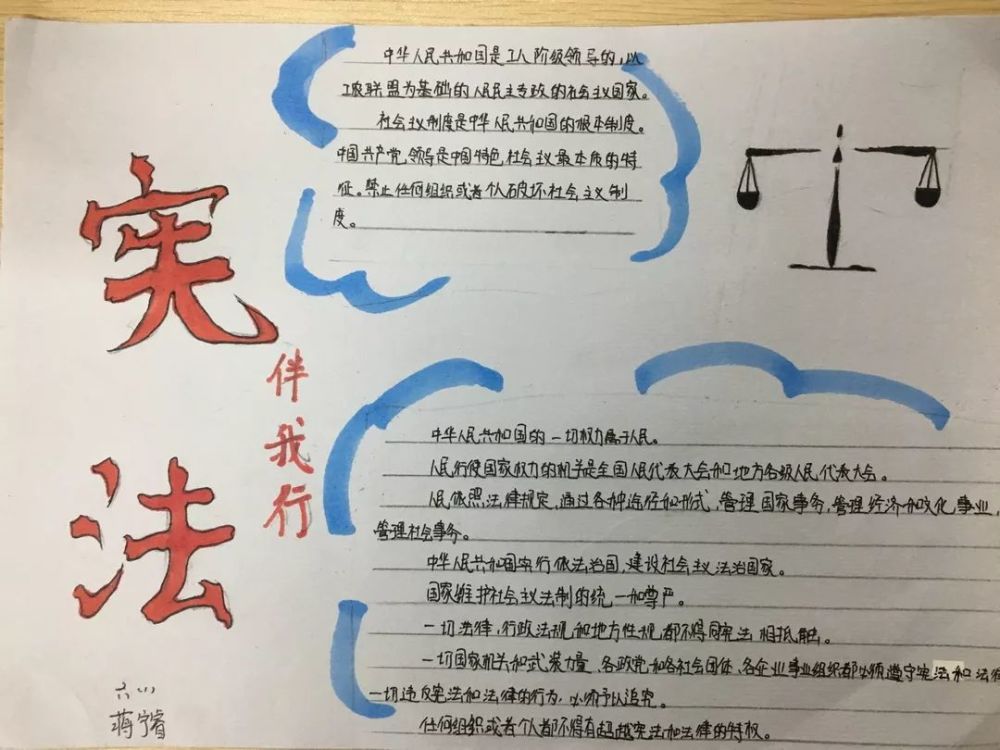 宪法
伴我行
中华人民共和国是工人阶级领导的，以
工农联盟为基础的人民民主专政的社会主义国家。
社会主义制度是中华人民共和国的根本制度。
中国共产党领导是中国特色社会主义最本质的特
征。禁止任何组织或者个人破坏社会主义制
度。
中华人民共和国的一切权力属于人民。
人民行使国家权力的机关是全国人民代表大会和地方各级人民代表大会。
人民依照法律规定，通过各种途径和形式，管理国家事务，管理经济和文化事业，
管理社会事务。
中华人民共和国实行依法治国，建设社会主义法治国家。
国家维护社会主义法制的统一和尊严。
一切法律，行政法规和地方性规都不得同宪法相抵触。
一切国家机关和武装力量、各政党和各社会团体、各企业事业组织都必须遵守宪法和法律
一切违反宪法和法律的行为，必须予以追究。
任何组织或者个人都不得有超越宪法和法律的特权。
六（1）
蒋睿